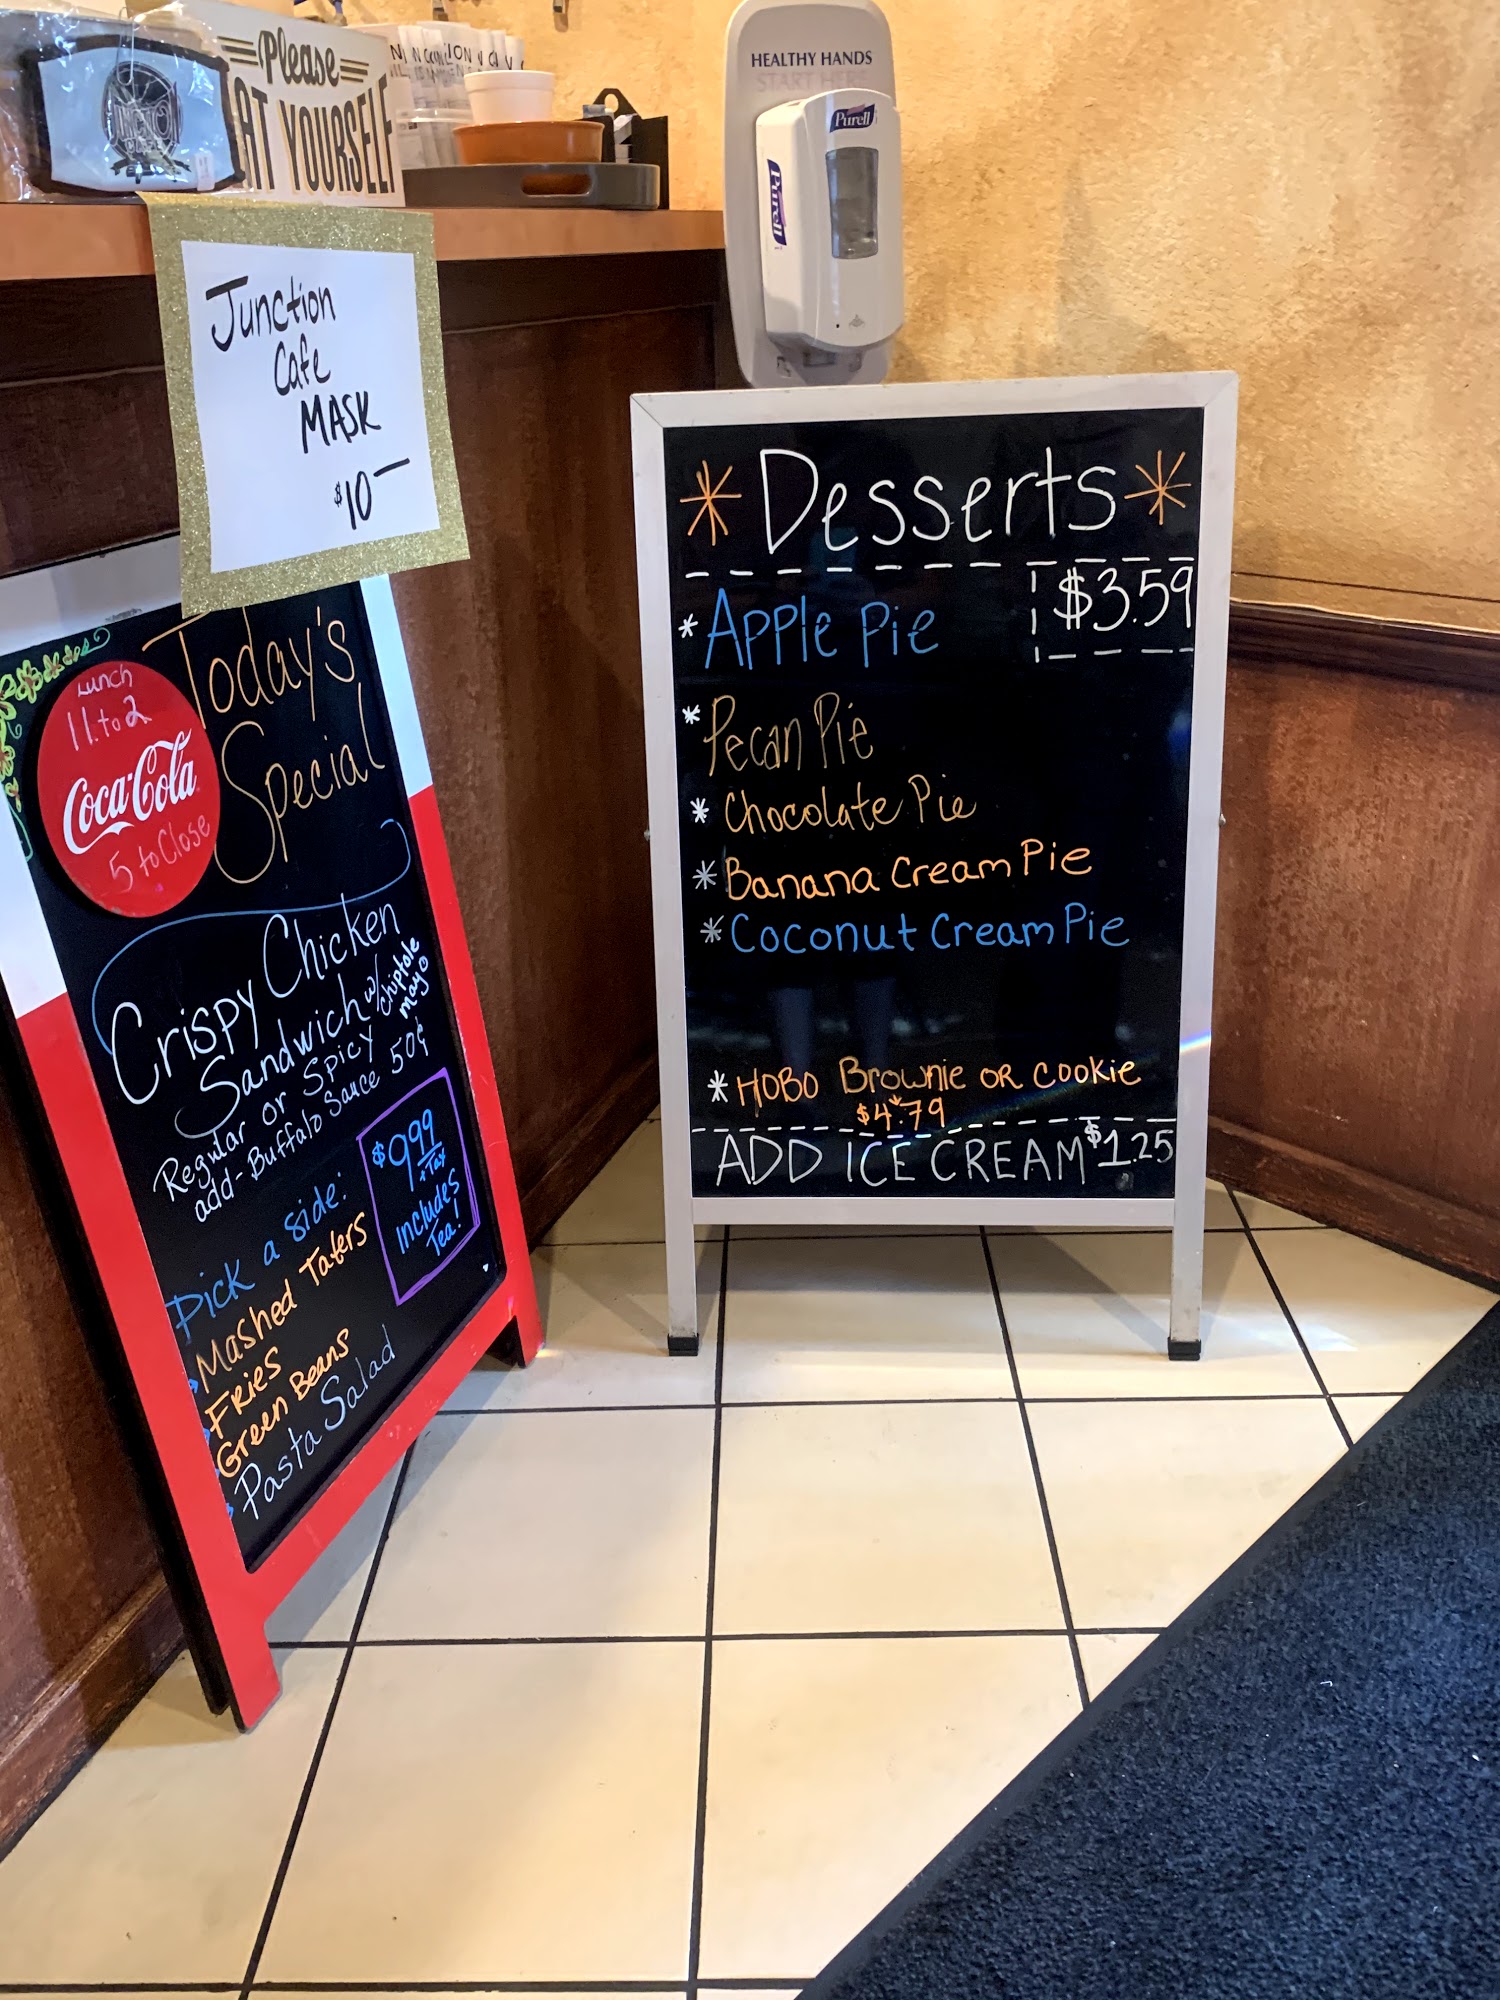 Please
AT YOURSELF
JUNCTION
CAFE
HEALTHY HANDS
START HERE
Purell
Purell
Junction
Cafe
MASK
$10—
Today's
Special
Lunch
11 to 2
Coca-Cola
5 to Close
Crispy Chicken
Sandwich w/ chiptole
mayo
Regular or Spicy
add- Buffalo Sauce 50¢
$9.99
+Tax
includes
Tea!
Pick a side:
Mashed Taters
Fries
Green Beans
Pasta Salad
* Desserts *
$3.59
* Apple Pie
* Pecan Pie
* Chocolate Pie
* Banana Cream Pie
* Coconut Cream Pie
* HOBO Brownie OR COOKIE
$4.79
ADD ICE CREAM $1.25